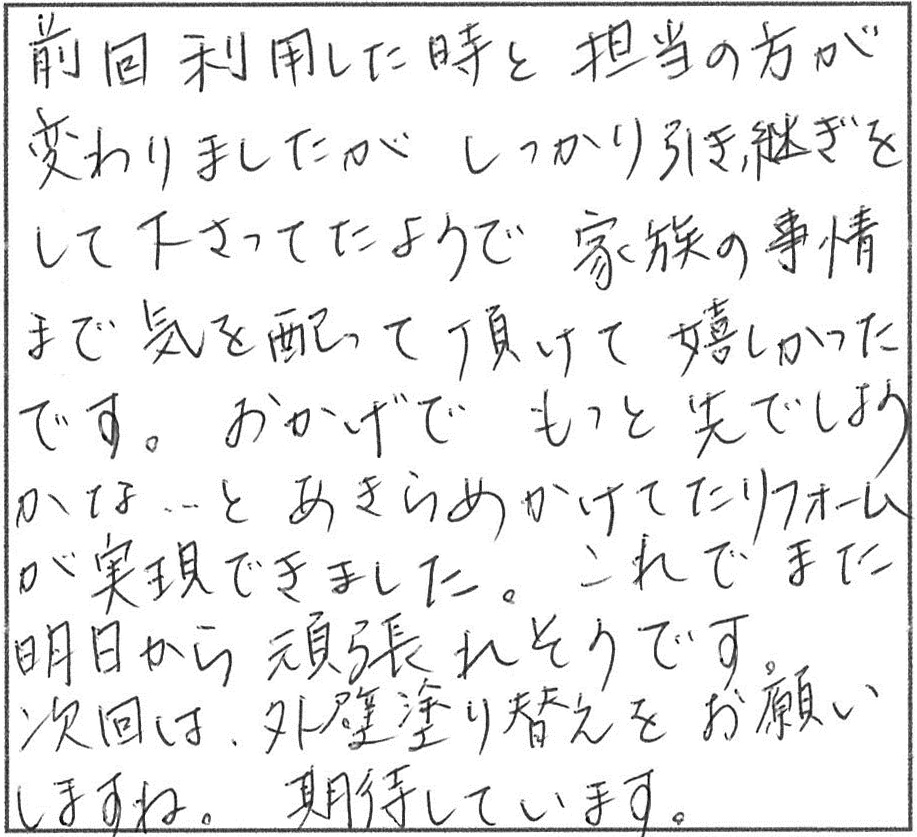 前回利用した時と担当の方が
変わりましたがしっかり引き継ぎを
して下さってたようで家族の事情
まで気を配って頂けて嬉しかった
です。おかげでもっと先でしよう
かな…とあきらめかけてたリフォーム
が実現できました。これでまた
明日から頑張れそうです。
次回は、外壁塗り替えをお願い
しますね。期待しています。